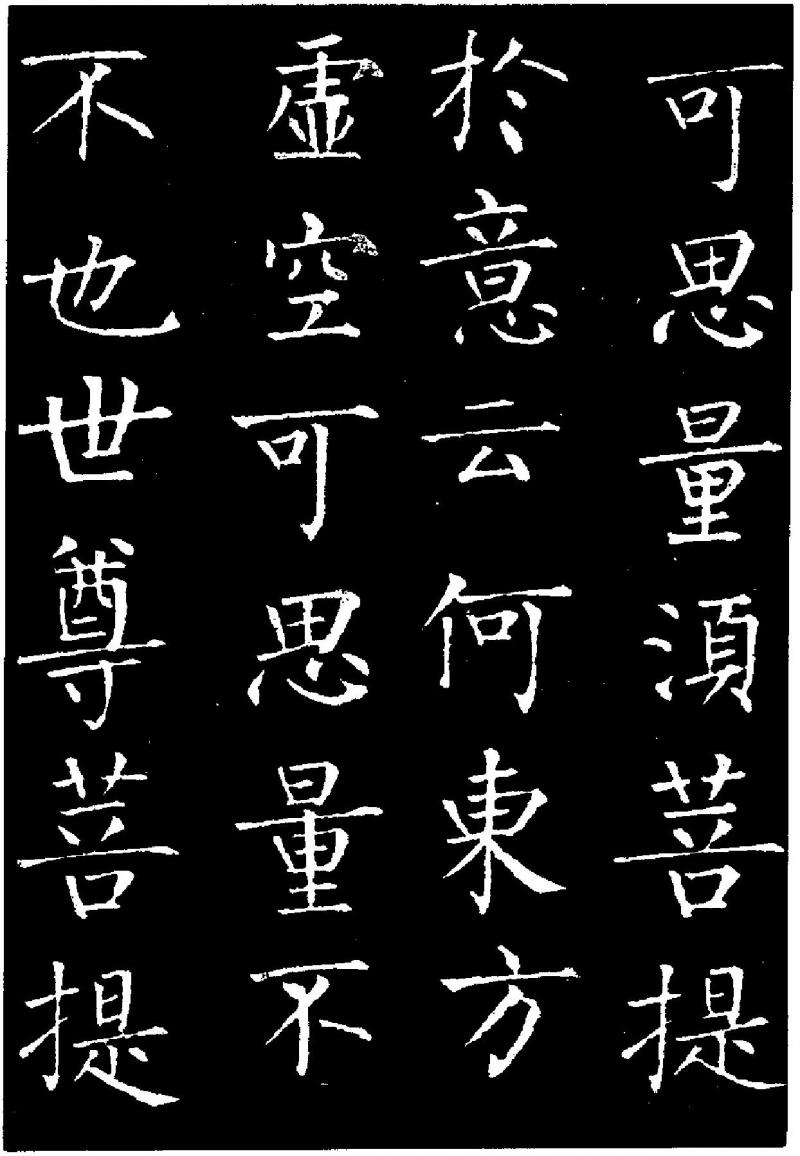 可思量湏菩提
於意云何東方
虛空可思量不
不也世尊菩提